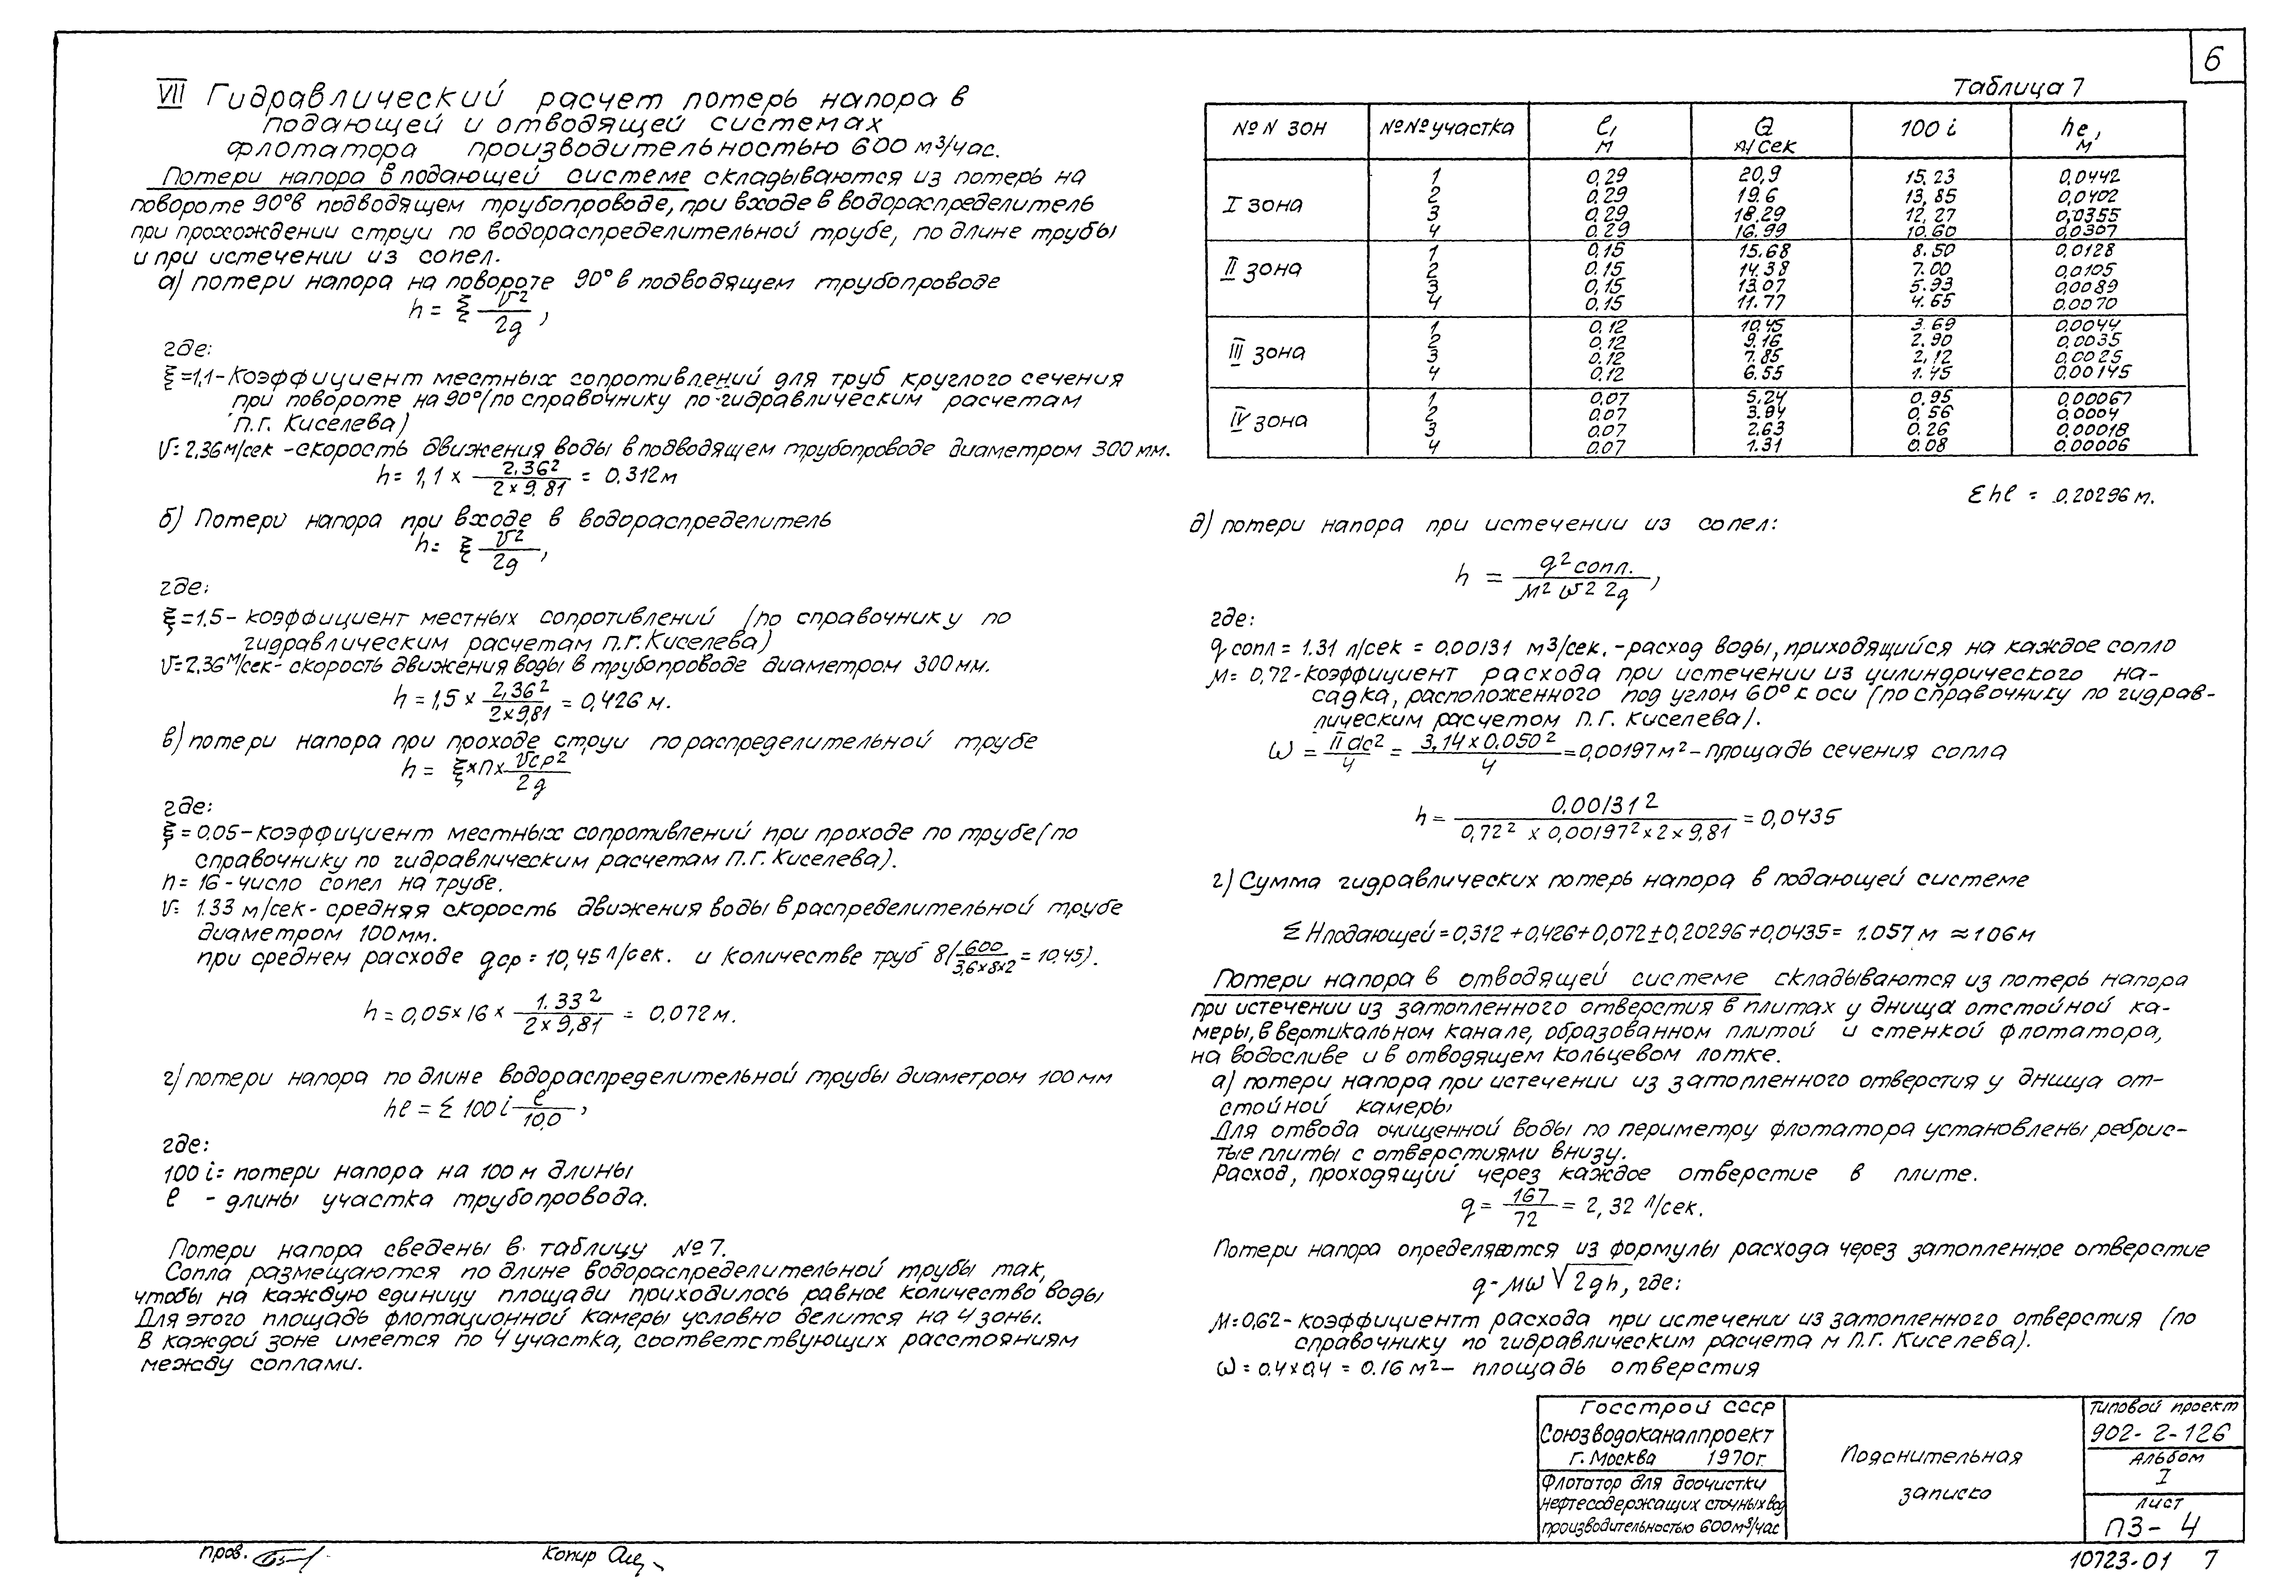 6
VII Гидравлический расчет потерь напора в
подающей и отводящей системах
флотатора производительностью 600 м³/час.
Потери напора в подающей системе складываются из потерь на
повороте 90° в подводящем трубопроводе, при входе в водораспределитель
при прохождении струи по водораспределительной трубе, по длине трубы
и при истечении из сопел.
а) потери напора на повороте 90° в подводящем трубопроводе
h = ξ v²/2g,
где:
ξ=1,1-Коэффициент местных сопротивлений для труб круглого сечения
при повороте на 90° (по справочнику по гидравлическим расчетам
П.Г. Киселева)
v=2,36 м/сек - скорость движения воды в подводящем трубопроводе диаметром 300 мм.
h= 1,1 × 2,36²/2×9,81 = 0.312 м
б) Потери напора при входе в водораспределитель
h= ξ v²/2g,
где:
ξ=1.5 - коэффициент местных сопротивлений (по справочнику по
гидравлическим расчетам П.Г. Киселева)
v=2,36 м/сек - скорость движения воды в трубопроводе диаметром 300 мм.
h = 1,5 × 2,36²/2×9,81 = 0,426 м.
в) потери напора при проходе струи по распределительной трубе
h = ξ×n× vср²/2g
где:
ξ=0.05-коэффициент местных сопротивлений при проходе по трубе (по
справочнику по гидравлическим расчетам П.Г. Киселева).
n= 16 - число сопел на трубе.
v= 1.33 м/сек - средняя скорость движения воды в распределительной трубе
диаметром 100 мм.
при среднем расходе qср = 10,45 л/сек. и количестве труб 8 (600/3,6×8×2 = 10.45).
h = 0,05×16 × 1.33²/2×9,81 = 0,072 м.
г) потери напора по длине водораспределительной трубы диаметром 100 мм
hℓ = Σ 100 i ℓ/10,0,
где:
100 i = потери напора на 100 м длины
ℓ - длины участка трубопровода.
Потери напора сведены в таблицу №7.
Сопла размещаются по длине водораспределительной трубы так,
чтобы на каждую единицу площади приходилось равное количество воды
Для этого площадь флотационной камеры условно делится на 4 зоны.
В каждой зоне имеется по 4 участка, соответствующих расстояниям
между соплами.
Таблица 7
№ N зон | №№ участка | ℓ, м | Q л/сек | 100 i | hℓ, м
I зона | 1 | 0,29 | 20,9 | 15,23 | 0,0442
2 | 0,29 | 19.6 | 13,85 | 0,0402
3 | 0,29 | 18.29 | 12,27 | 0,0355
4 | 0.29 | 16.99 | 10.60 | 0,0307
II зона | 1 | 0,15 | 15.68 | 8.50 | 0,0128
2 | 0.15 | 14.38 | 7.00 | 0,0105
3 | 0,15 | 13.07 | 5.93 | 0,0089
4 | 0,15 | 11.77 | 4.65 | 0.0070
III зона | 1 | 0,12 | 10,45 | 3.69 | 0,0044
2 | 0.12 | 9.16 | 2.90 | 0,0035
3 | 0,12 | 7.85 | 2,12 | 0,0025
4 | 0,12 | 6.55 | 1.45 | 0.00145
IV зона | 1 | 0,07 | 5,24 | 0,95 | 0,00067
2 | 0.07 | 3.94 | 0,56 | 0,0004
3 | 0.07 | 2.63 | 0.26 | 0,00018
4 | 0.07 | 1.31 | 0.08 | 0,00006
Σ hℓ = 0.20296 м.
д) потери напора при истечении из сопел:
h = q² сопл./м² ω² 2g,
где:
q сопл = 1.31 л/сек = 0,00131 м³/сек. - расход воды, приходящийся на каждое сопло
м= 0,72-коэффициент расхода при истечении из цилиндрического на-
садка, расположенного под углом 60° к оси (по справочнику по гидрав-
лическим расчетом П.Г. Киселева).
ω = П dс²/4 = 3,14×0.050²/4 = 0,00197 м² - площадь сечения сопла
h = 0,00131²/0,72² × 0,00197² × 2 × 9,81 = 0,0435
г) Сумма гидравлических потерь напора в подающей системе
Σ Hподающей = 0,312 + 0,426 + 0,072 ± 0,20296 + 0,0435 = 1.057 м ≈ 106 м
Потери напора в отводящей системе складываются из потерь напора
при истечении из затопленного отверстия в плитах у днища отстойной ка-
меры, в вертикальном канале, образованном плитой и стенкой флотатора,
на водосливе и в отводящем кольцевом лотке.
а) потери напора при истечении из затопленного отверстия у днища от-
стойной камеры
Для отвода очищенной воды по периметру флотатора установлены ребрис-
тые плиты с отверстиями внизу.
Расход, проходящий через каждое отверстие в плите.
q = 167/72 = 2,32 л/сек.
Потери напора определяются из формулы расхода через затопленное отверстие
q - мω √2gh, где:
м=0,62 - коэффициентт расхода при истечении из затопленного отверстия (по
справочнику по гидравлическим расчета м П.Г. Киселева).
ω = 0.4×0,4 = 0.16 м² - площадь отверстия
Госстрой СССР
Союзводоканалпроект
г. Москва 1970г.
Флотатор для доочистки
нефтесодержащих сточных вод
производительностью 600 м³/час
Пояснительная
записко
Типовой проект
902-2-126
Альбом
I
лист
ПЗ-4
Пров.
Копир
10723-01 7